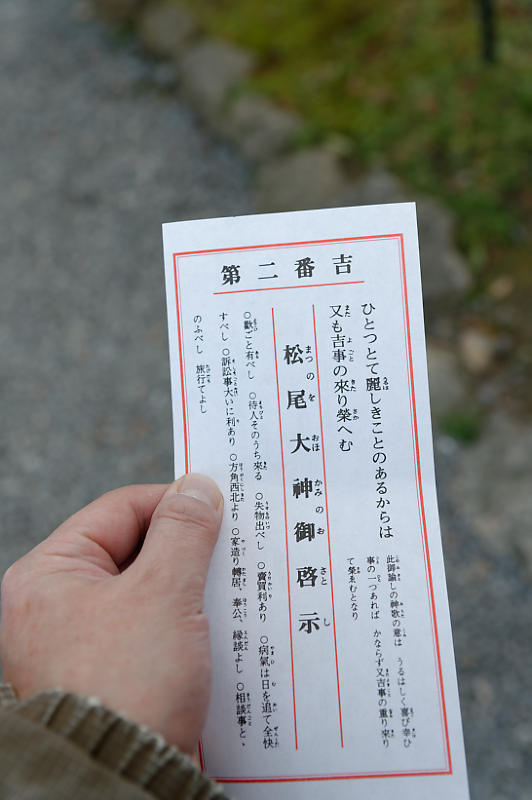 第二番吉
ひとつとて麗しきことのあるからは
又も吉事の來り榮へむ
此御諭しの神歌の意は うるはしく喜び幸ひ
事の一つあれば かならず又吉事の重り來り
て榮ゑむとなり
松尾大神御啓示
○歡ごと有べし ○待人そのうち來る ○失物出べし ○賣買利あり ○病氣は日を追て全快
すべし ○訴訟事大いに利あり ○方角西北より ○家造り轉居、奉公、縁談よし ○相談事と、
のふべし 旅行てよし